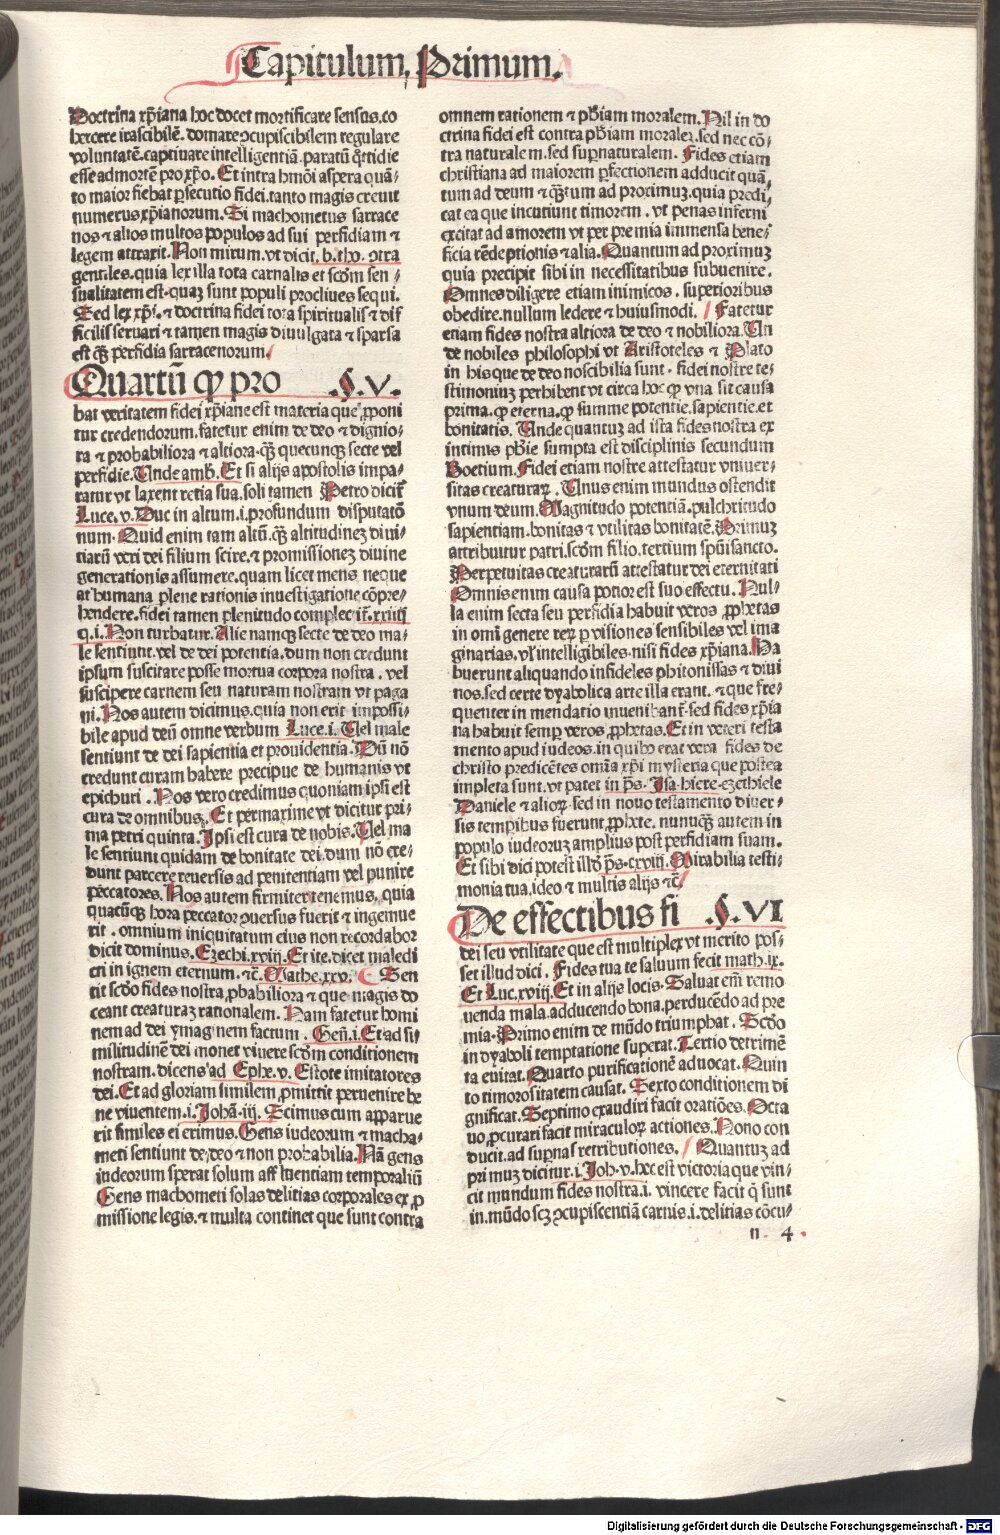 Capitulum, Primum.
Doctrina xp̄iana hoc docet mortificare sensus.co
hercere irascibilē. domare ꝯcupiscibilem regulare
voluntatē.captiuare intelligentiā.paratū q̄ttidie
esse ad mortē pro xp̄o. Et intra hm̄oi aspera quā-
to maior fiebat ꝑsecutio fidei.tanto magis creuit
numerus xp̄ianorum. Si machometus sarrace
nos ⁊ alios multos populos ad sui perfidiam ⁊
legem attraxit. Non mirum.vt dicit. b.tho. ꝯtra
gentiles.quia lex illa tota carnalis et scd̄m sen /
sualitatem est.quaꝫ sunt populi procliues sequi.
Sed lex xp̄i. ⁊ doctrina fidei tota spiritualis ⁊ dif
ficilis seruari ⁊ tamen magis diuulgata ⁊ sparsa
est qꝫ perfidia sarracenorum.
Quartū ꝙ pro .§.V.
bat veritatem fidei xp̄iane est materia que ꝓponi
tur credendorum.fatetur enim de deo ⁊ dignio-
ra ⁊ probabiliora ⁊ altiora.qꝫ quecunqꝫ secte vel
perfidie. Unde amb. Et si alijs apostolis impa-
ratur vt laxent retia sua.soli tamen Petro dicit̄
Luce.v. Duc in altum.i.profundum disputatō
num. Quid enim tam altū.qꝫ altitudineꝫ diui-
tiarū veri dei filium scire.⁊ promissioneꝫ diuine
generationis assumere.quam licet mens neque
at humana plene rationis inuestigatione cōpre-
hendere.fidei tamen plenitudo complec̄ iť.xxiiij
q.i. Non turbatur. Alie namqꝫ secte de deo ma-
le sentiunt.vel de dei potentia.dum non credunt
ipsum suscitare posse mortua corpora nostra . vel
suscipere carnem seu naturam nostram vt paga
ni. Nos autem dicimus.quia non erit impossi-
bile apud deū omne verbum Luce.i. Uel male
sentiunt de dei sapientia et prouidentia. Dū nō
credunt curam habere precipue de humanis vt
epichuri . Nos vero credimus quoniam ipsi est
cura de omnibus. Et permaxime vt dicitur pri-
ma petri quinta. Ipsi est cura de nobis. Uel ma
le sentiunt quidam de bonitate dei.dum nō cre-
dunt parcere reuersis ad penitentiam vel punire
peccatores. Nos autem firmiter tenemus, quia
quacūqꝫ hora peccator ꝯuersus fuerit ⁊ ingemue
rit . omnium iniquitatum eius non recordabor
dicit dominus. Ezechi.xviij. Et ite.dicet maledi
cti in ignem eternum. ⁊c̄. Mathe.xxv. Sen
tit scd̄o fides nostra.ꝓbabiliora ⁊ que magis do
ceant creaturaꝫ rationalem. Nam fatetur homi
nem ad dei ymaginem factum . Geñ.i. Et ad si-
militudinē dei monet viuere scd̄m conditionem
nostram. dicens ad Ephe.v. Estote imitatores
dei. Et ad gloriam similem ꝓmittit peruenire be
ne viuentem.i. Johā.iij. Scimus cum apparue
rit similes ei erimus. Gens iudeorum ⁊ macha-
meti sentiunt de deo ⁊ non probabilia. Nā gens
iudeorum sperat solum affluentiam temporaliū
Gens machometi solas delitias corporales ex ꝓ
missione legis.⁊ multa continet que sunt contra
omnem rationem ⁊ ph̄iam moralem. Nil in do
ctrina fidei est contra ph̄iam moraleꝫ.sed nec cō-
tra naturalem.sed suꝑnaturalem. Fides etiam
christiana ad maiorem ꝑfectionem adducit quā-
tum ad deum ⁊ qꝫtum ad proximuꝫ.quia predi,
cat ea que incutiunt timorem . vt penas inferni
excitat ad amorem vt per premia immensa bene-
ficia rēdeptionis ⁊ alia. Quantum ad proximuꝫ
quia precipit sibi in necessitatibus subuenire.
Omnes diligere etiam inimicos . superioribus
obedire.nullum ledere ⁊ huiusmodi. Fatetur
etiam fides nostra altiora de deo ⁊ nobiliora. Un
de nobiles philosophi vt Aristoteles ⁊ Plato
in his que de deo noscibilia sunt . fidei nostre te-
stimoniuꝫ perhibent vt circa hoc ꝙ vna sit causa
prima.ꝙ eterna.ꝙ summe potentie.sapientie.et
bonitatis. Unde quantuꝫ ad ista fides nostra ex
intimus ph̄ie sumpta est disciplinis secundum
Boetium. Fidei etiam nostre attestatur vniuer-
sitas creaturaꝝ . Unus enim mundus ostendit
vnum deum. Magnitudo potentiā.pulchritudo
sapientiam.bonitas ⁊ vtilitas bonitatē. Primuꝫ
attribuitur patri.scd̄m filio.tertium sp̄ui sancto.
Perpetuitas creaturarū attestatur dei eternitati
Omnis enim causa potior est suo effectu. Nul-
la enim secta seu perfidia habuit veros ꝓphetas
in omī genere reꝝ ꝑ visiones sensibiles vel ima
ginarias.vľ intelligibiles.nisi fides xp̄iana. Ha
buerunt aliquando infideles phitonissas ⁊ diui
nos.sed certe dyabolica arte illa erant. ⁊ que fre-
quenter in mendatio inuenibant̄.sed fides xp̄ia
na habuit semꝑ veros ꝓphetas. Et in veteri testa
mento apud iudeos.in quibꝰ erat vera fides de
christo predicētes omīa xp̄i mysteria que postea
impleta sunt.vt patet in ps̄. Isa.hiere.ezechiele
Daniele ⁊ alioꝝ.sed in nouo testamento diuer-
sis temꝑibus fuerunt ꝓphete. nunuqꝫ autem in
populo iudeoruꝫ amplius post perfidiam suam.
Et sibi dici potest illđ ps̄.cxviij. Mirabilia testi-
monia tua.ideo ⁊ multis alijs ⁊c̄.
De effectibus fi .§.VI
dei seu vtilitate que est multiplex vt merito pos-
set illud dici . Fides tua te saluum fecit math.ix.
Et Luc.xviij. Et in alijs locis. Saluat em̄ remo
uenda mala.adducendo bona.perducēdo ad pre
mia. Primo enim de mūdo triumphat . Scd̄o
in dyaboli temptatione superat. Tertio detrimē
ta euitat. Quarto purificationē aduocat. Quin
to timorositatem causat. Sexto conditionem di
gnificat. Septimo exaudiri facit oratiōes. Octa
uo ꝓcurari facit miraculoꝝ actiones. Nono con
ducit.ad suꝑnas retributiones. Quantuꝫ ad
primuꝫ dicitur.i. Joh.v.hec est victoria que vin-
cit mundum fides nostra.i. vincere facit q̄ sunt
in.mūdo scꝫ ꝯcupiscentiā carnis.i.delitias cōcu-
n . 4 .
Digitalisierung gefördert durch die Deutsche Forschungsgemeinschaft - DFG